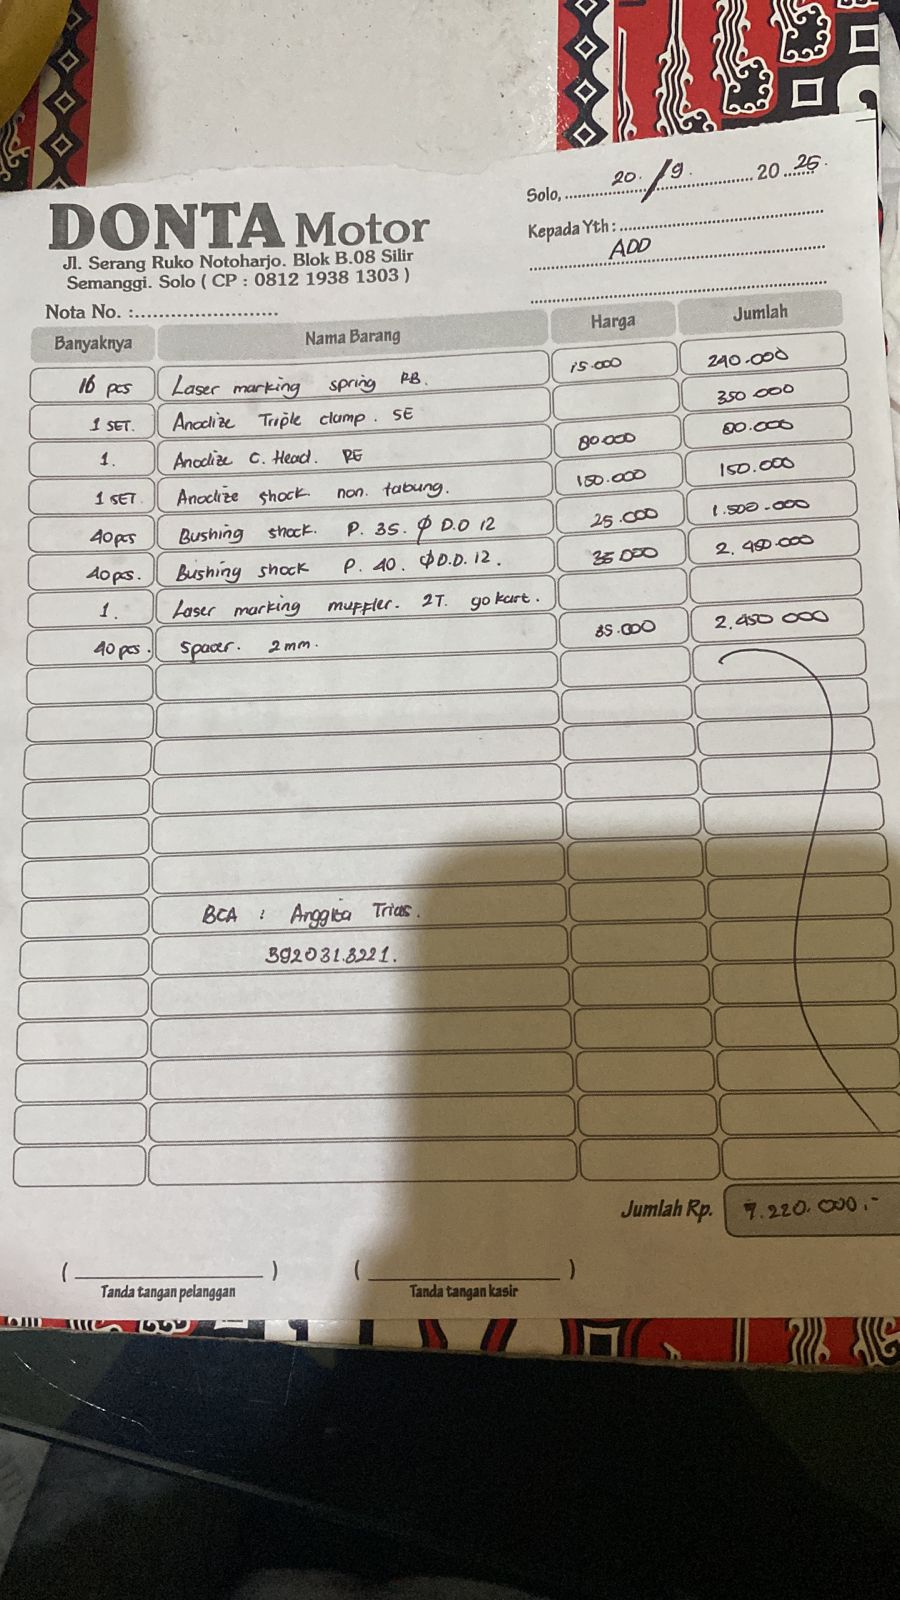 Solo, 20/9. 20 25.
DONTA Motor
Kepada Yth :
ADD
Jl. Serang Ruko Notoharjo. Blok B.08 Silir
Semanggi. Solo ( CP : 0812 1938 1303 )
Nota No. :
Banyaknya Nama Barang Harga Jumlah
16 pcs Laser marking spring RB. 15.000 240.000
1 SET. Anodize Triple clamp. SE 350 000
1. Anodize C. Head. RE 80.000 80.000
1 SET Anodize shock non. tabung. 150.000 150.000
40 pcs Bushing shock. P. 35. ϕ D.O 12 25.000
40 pcs. Bushing shock P. 40. ϕ D.D. 12. 35 000
1. Laser marking muffler. 2T. gokart.
40 pcs. Spacer. 2 mm. 35.000 2.450 000
BCA : Anggita Trias.
392031.3221.
Jumlah Rp. 7.220.000.-
( ) ( )
Tanda tangan pelanggan Tanda tangan kasir